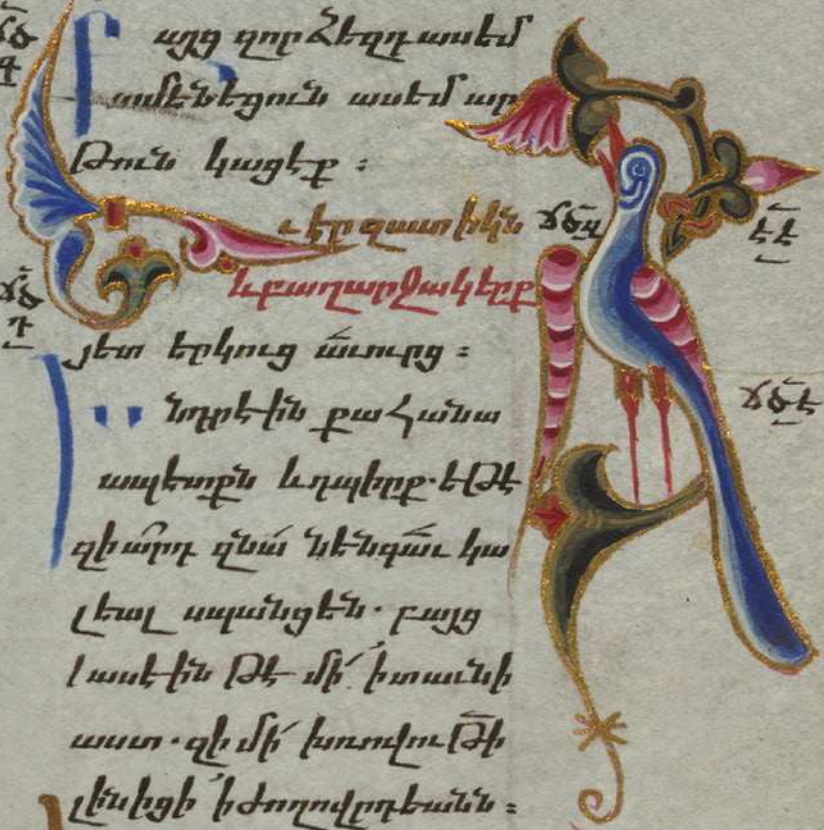 Բայց զոր Ձեզդ ասեմ
ամենեցուն ասեմ ար
թուն կացէք :
Եւ էր զատիկն
և բաղարջակերք
յետ երկուց աւուրց :
ճծ
դ
ճծե
նդրէին քահանա
ապետքն և դպիրք. եթէ
զիարդ զնա նենգաւ կա
լեալ սպանցեն. բայց
ասէին թէ մի՛ ի տաւնի
աստ. զի մի՛ խռովութի
լինիցի ի ժողովրդեանն :